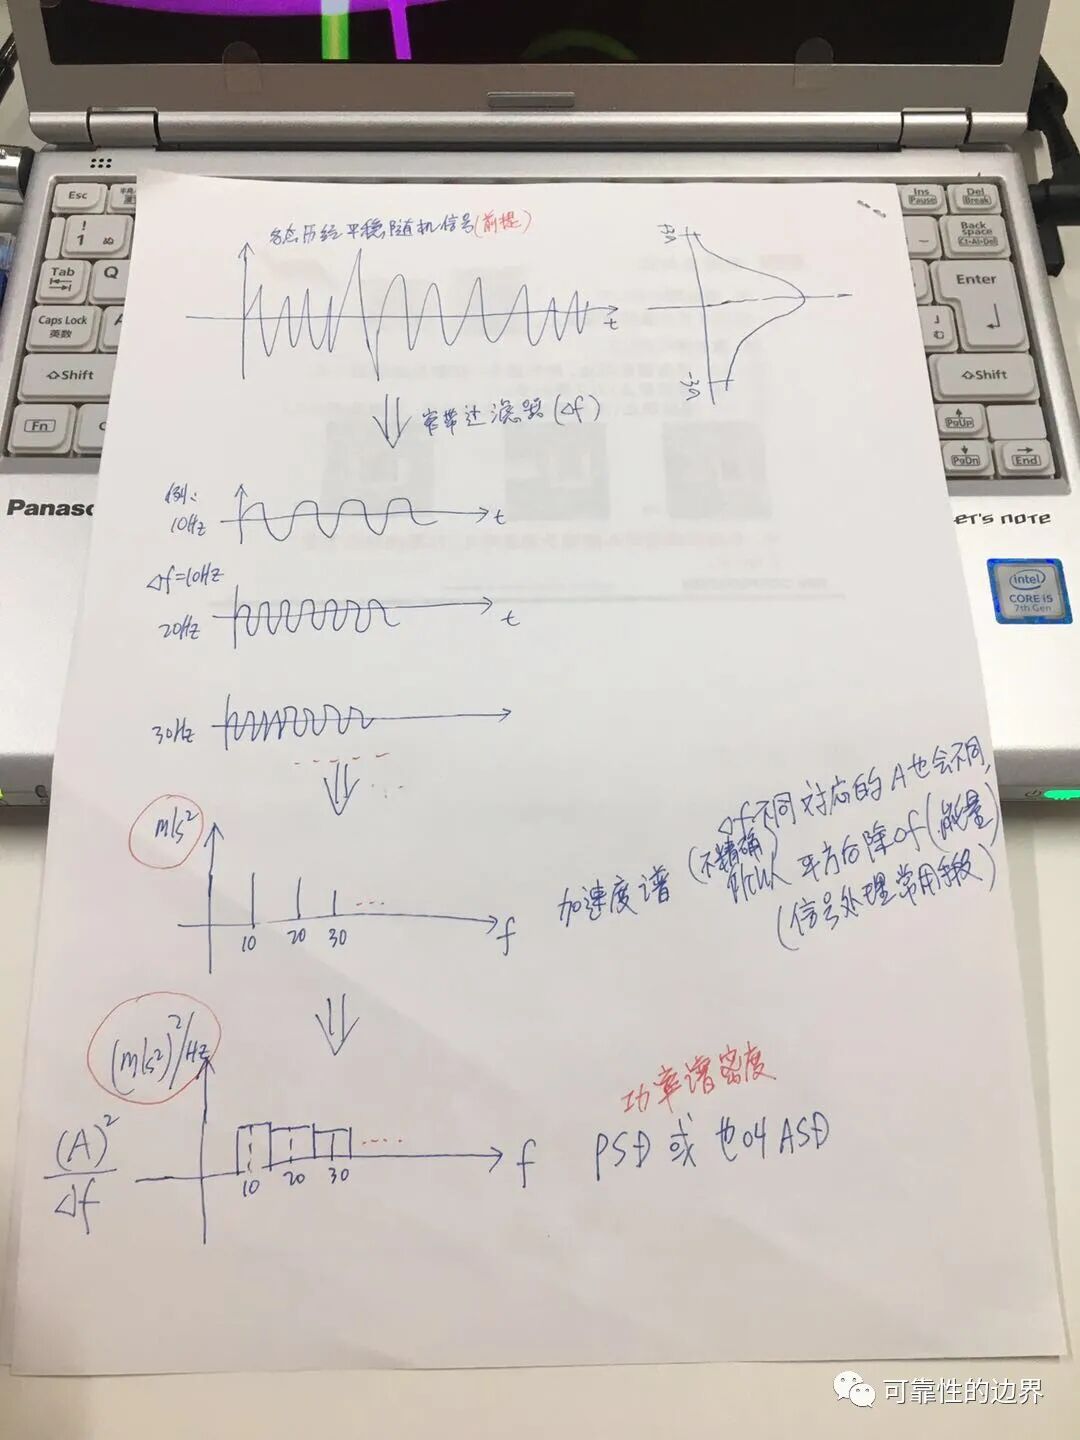 Esc
半角/
! 1 ぬ
Tab
Q
Caps Lock
英数
⇧Shift
Fn
Ins
Pause
Del
Break
Back
space
Ctrl+Alt+Del
Enter
む
⇧Shift
PgUp
PgDn
End
Panaso
Let's note
intel
CORE i5
7th Gen
各态历经平稳随机信号(前提)
t
3σ
-3σ
窄带过滤器(Δf)
例:
10Hz
t
Δf=10Hz
20Hz
t
30Hz
m/s²
10 20 30 ...
f
加速度谱
(不精确)
Δf不同对应的A也会不同,
所以 平方后除Δf(能量)
(信号处理常用手段)
(m/s²)²/Hz
(A)²
Δf
10 20 30
f
功率谱密度
PSD或也叫ASD
可靠性的边界